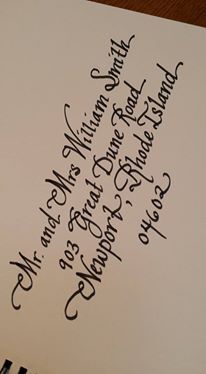 Mr. and Mrs William Smith
903 Great Dune Road
Newport, Rhode Island
04602